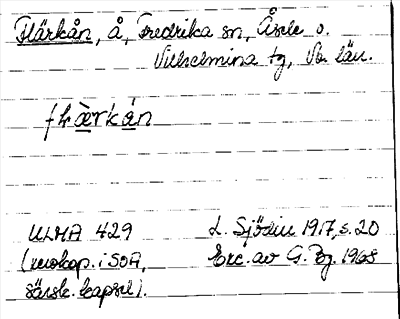 Flärkån, å, Fredrika sn, Åsele o.
Vilhelmina tg, Vb. län.
flærkån
ULMA 429
(mskop. i SOA,
särsk. kapsel).
L. Sjödin 1917, s. 20
Exc. av G. Pg. 1968